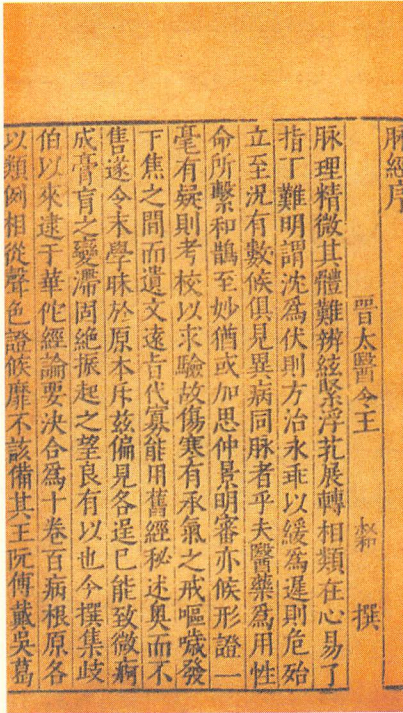 脉經序
晉太醫令王 叔和 撰
脉理精微其體難辨絃緊浮芤展轉相類在心易了
指下難明謂沈爲伏則方治永乖以緩爲遲則危殆
立至況有數候俱見異病同脉者乎夫醫藥爲用性
命所繫和鵲至妙猶或加思仲景明審亦候形證一
毫有疑則考校以求驗故傷寒有承氣之戒嘔噦發
下焦之間而遺文遠旨代寡能用舊經秘述奧而不
售遂令末學昧於原本斥兹偏見各逞已能致微痾
成膏肓之變滯固絶振起之望良有以也今撰集歧
伯以來逮于華佗經論要决合爲十卷百病根原各
以類例相從聲色證候靡不該備其王阮傅戴吳葛